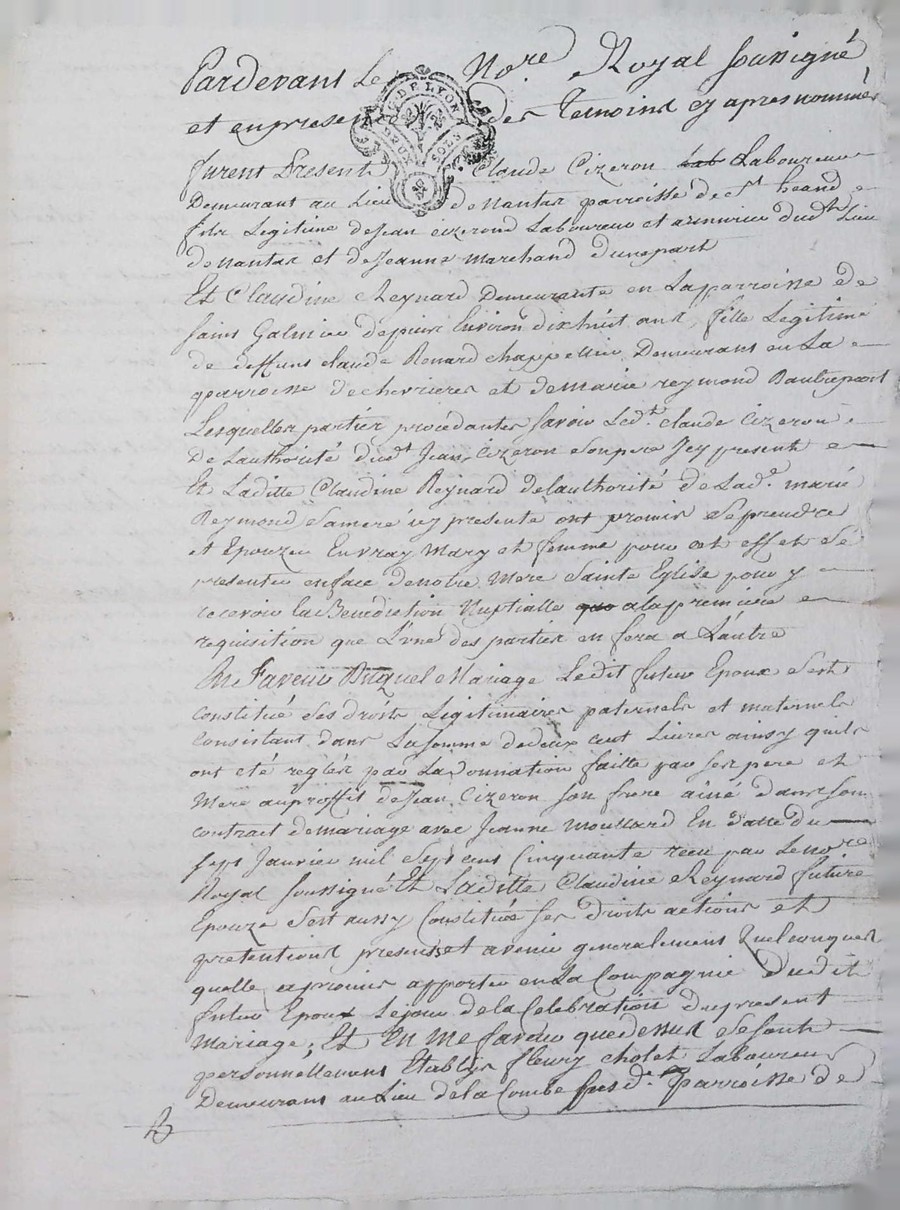 Pardevant Le No.re Royal soussigné
et en presence des Temoins cy apres nommés
GE. DE LYON
DEUX SOLS
furent Presents Claude Cizeron Laboureur
Demeurant au Lieu de Nantas parroisse de St heand
fils Legitime de Jean cizeron Laboureur et dud.t Lieu
de Nantas et de Jeanne Marchand d'unepart
Et Claudine Reynard Demeurante en La parroisse de
Saint Galmier depuis Environ dixhuit ans, fille Legitime
de deffunt claude Renard chappellier Demeurant en La
parroisse de chevrieres et de Marie reymond Dautrepart
Lesquelles parties procédantes savoir Led.t claude Cizeron
De Lauthorité dud.t Jean Cizeron son pere Jcy present
Et Laditte Claudine Reynard de lauthorité de Lad.e marie
Reymond sa mere icy presente ont promis se prendre
et Epouzer En vray Mary et femme pour cet effet se
presenter en face de notre Mere Sainte Eglise pour y
recevoir La Benediction Nuptialle a la premiere
requisition que L'une des parties en fera a L'autre
En Faveur Duquel Mariage Ledit futur Epoux s'est
constitué ses droits Legitimaires paternels et maternels
Consistant dans La somme de deux cent Livres ainsy quils
ont eté reglés par La Donnation faitte par ses pere et
Mere au proffit de Jean Cizeron son frere ainé dans son
contract de mariage avec Jeanne Moullard En Datte du
sept Janvier mil sept cent Cinquante recu par Le no.re
Royal soussigné Et Laditte Claudine Reynard future
Epouze s'est aussy Constituée ses droits actions et
pretentions presents et avenir generalement Quelconques
quelle a promis apporter en La Compagnie Dudit
futur Epoux Le jour de la Celebration du present
Mariage; Et En Me faveur que dessus se sont
personnellement Etablys fleury cholet Laboureur
Demeurant au Lieu de la Combe susd.e Parroisse de